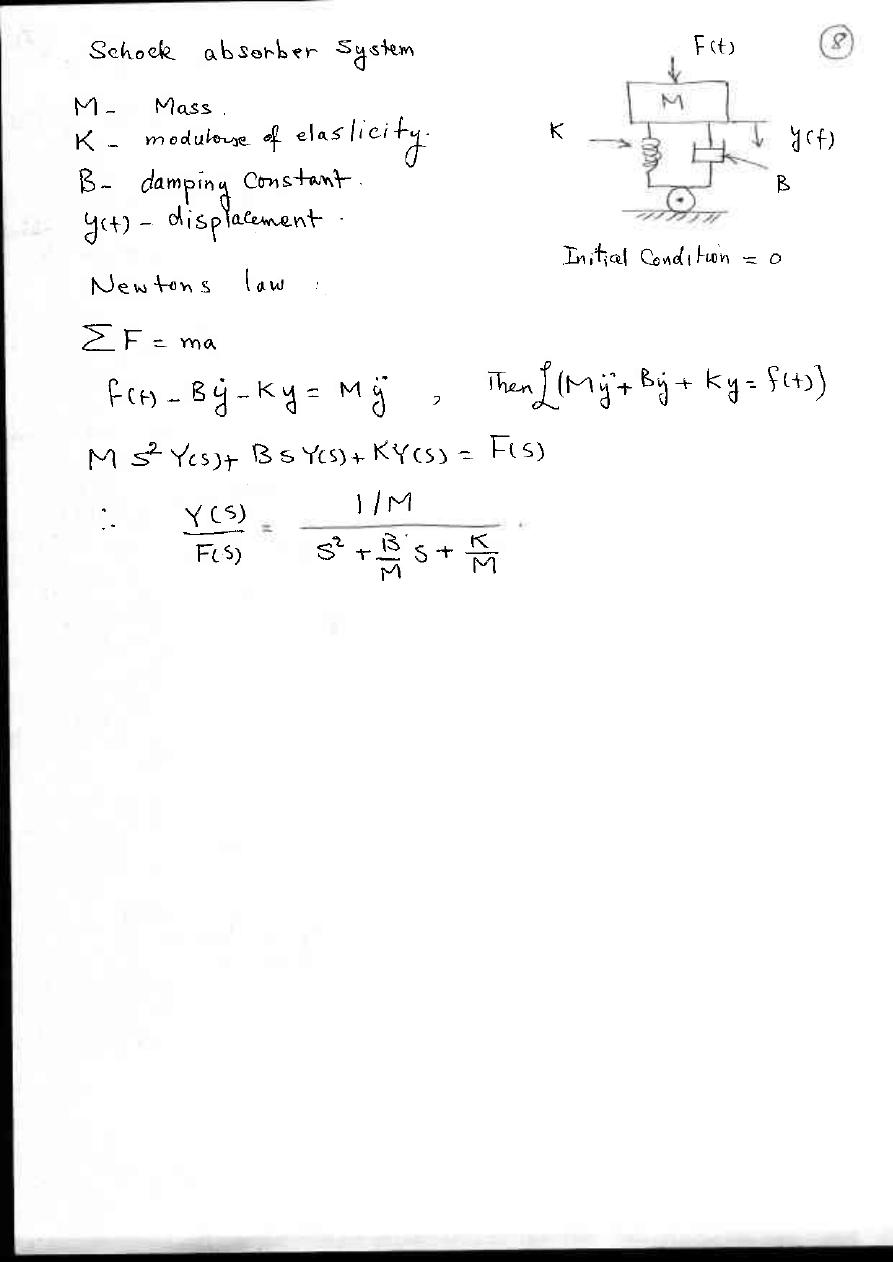 Schock absorber System
F(t)
8
M - Mass.
M
K - modulouse of elaslicity.
K
y(t)
B - damping Constant.
B
y(t) - displacement.
Initial Condition = 0
Newtons law :
∑F = ma
f(t) - Bẏ - Ky = Mÿ , Then ℒ{(Mÿ + Bẏ + Ky = f(t))}
M S² Y(s) + B s Y(s) + KY(s) = F(s)
∴ Y(S)/F(S) = (1/M)/(S² + B/M S + K/M)